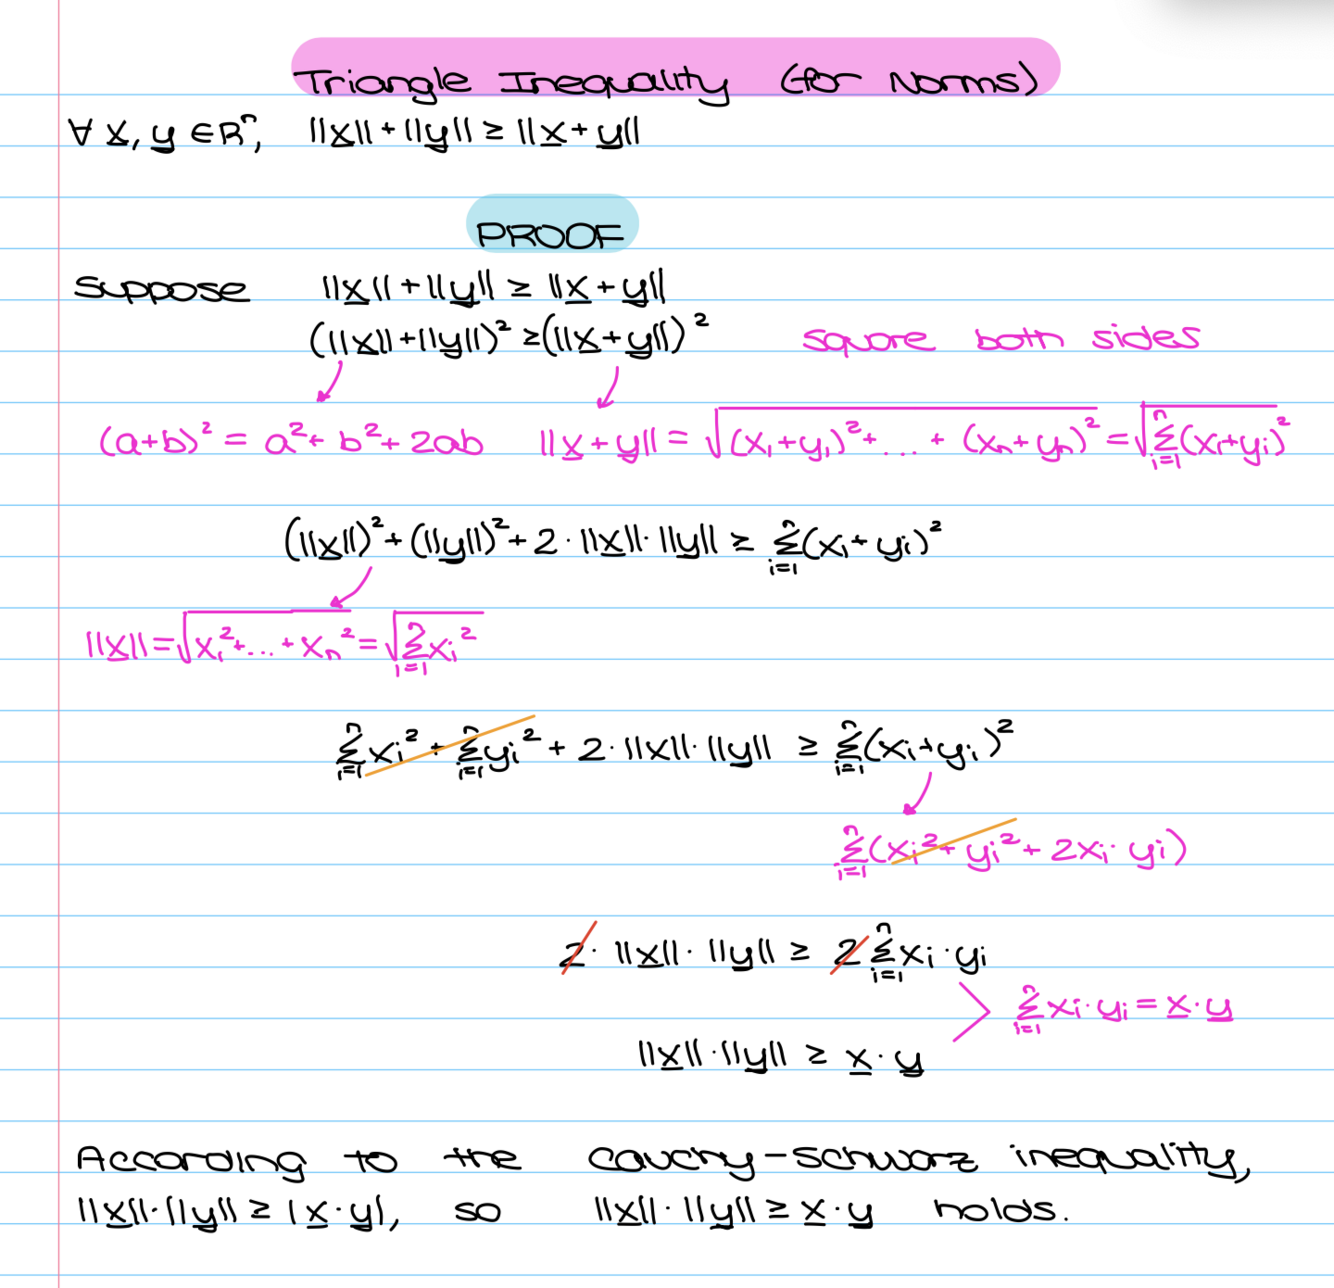 Triangle Inequality (for Norms)
∀ x̲, y̲ ∈ ℝⁿ, ||x̲|| + ||y̲|| ≥ ||x̲ + y̲||
PROOF
Suppose ||x̲|| + ||y̲|| ≥ ||x̲ + y̲||
(||x̲|| + ||y̲||)² ≥ (||x̲ + y̲||)² square both sides
(a+b)² = a² + b² + 2ab ||x̲ + y̲|| = √((x₁+y₁)² + ... + (xₙ+yₙ)²) = √(∑ⁿᵢ₌₁(xᵢ+yᵢ)²)
(||x̲||)² + (||y̲||)² + 2 · ||x̲|| · ||y̲|| ≥ ∑ⁿᵢ₌₁(xᵢ + yᵢ)²
||x̲|| = √(x₁² + ... + xₙ²) = √(∑ⁿᵢ₌₁ xᵢ²)
∑ⁿᵢ₌₁ xᵢ² + ∑ⁿᵢ₌₁ yᵢ² + 2 · ||x̲|| · ||y̲|| ≥ ∑ⁿᵢ₌₁(xᵢ + yᵢ)²
∑ⁿᵢ₌₁(xᵢ² + yᵢ² + 2xᵢ · yᵢ)
2 · ||x̲|| · ||y̲|| ≥ 2 ∑ⁿᵢ₌₁ xᵢ · yᵢ
∑ⁿᵢ₌₁ xᵢ · yᵢ = x̲ · y̲
||x̲|| · ||y̲|| ≥ x̲ · y̲
According to the Cauchy-Schwarz inequality,
||x̲|| · ||y̲|| ≥ |x̲ · y̲|, so ||x̲|| · ||y̲|| ≥ x̲ · y̲ holds.